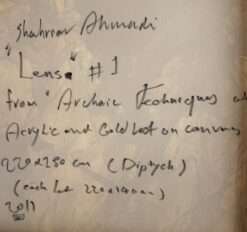 Shahriar Ahmadi
"Lense" #1
from "Archaic Techniques
Acrylic and Gold leaf on canvas
220x280 cm (Diptych)
(each 220x140cm)
2011